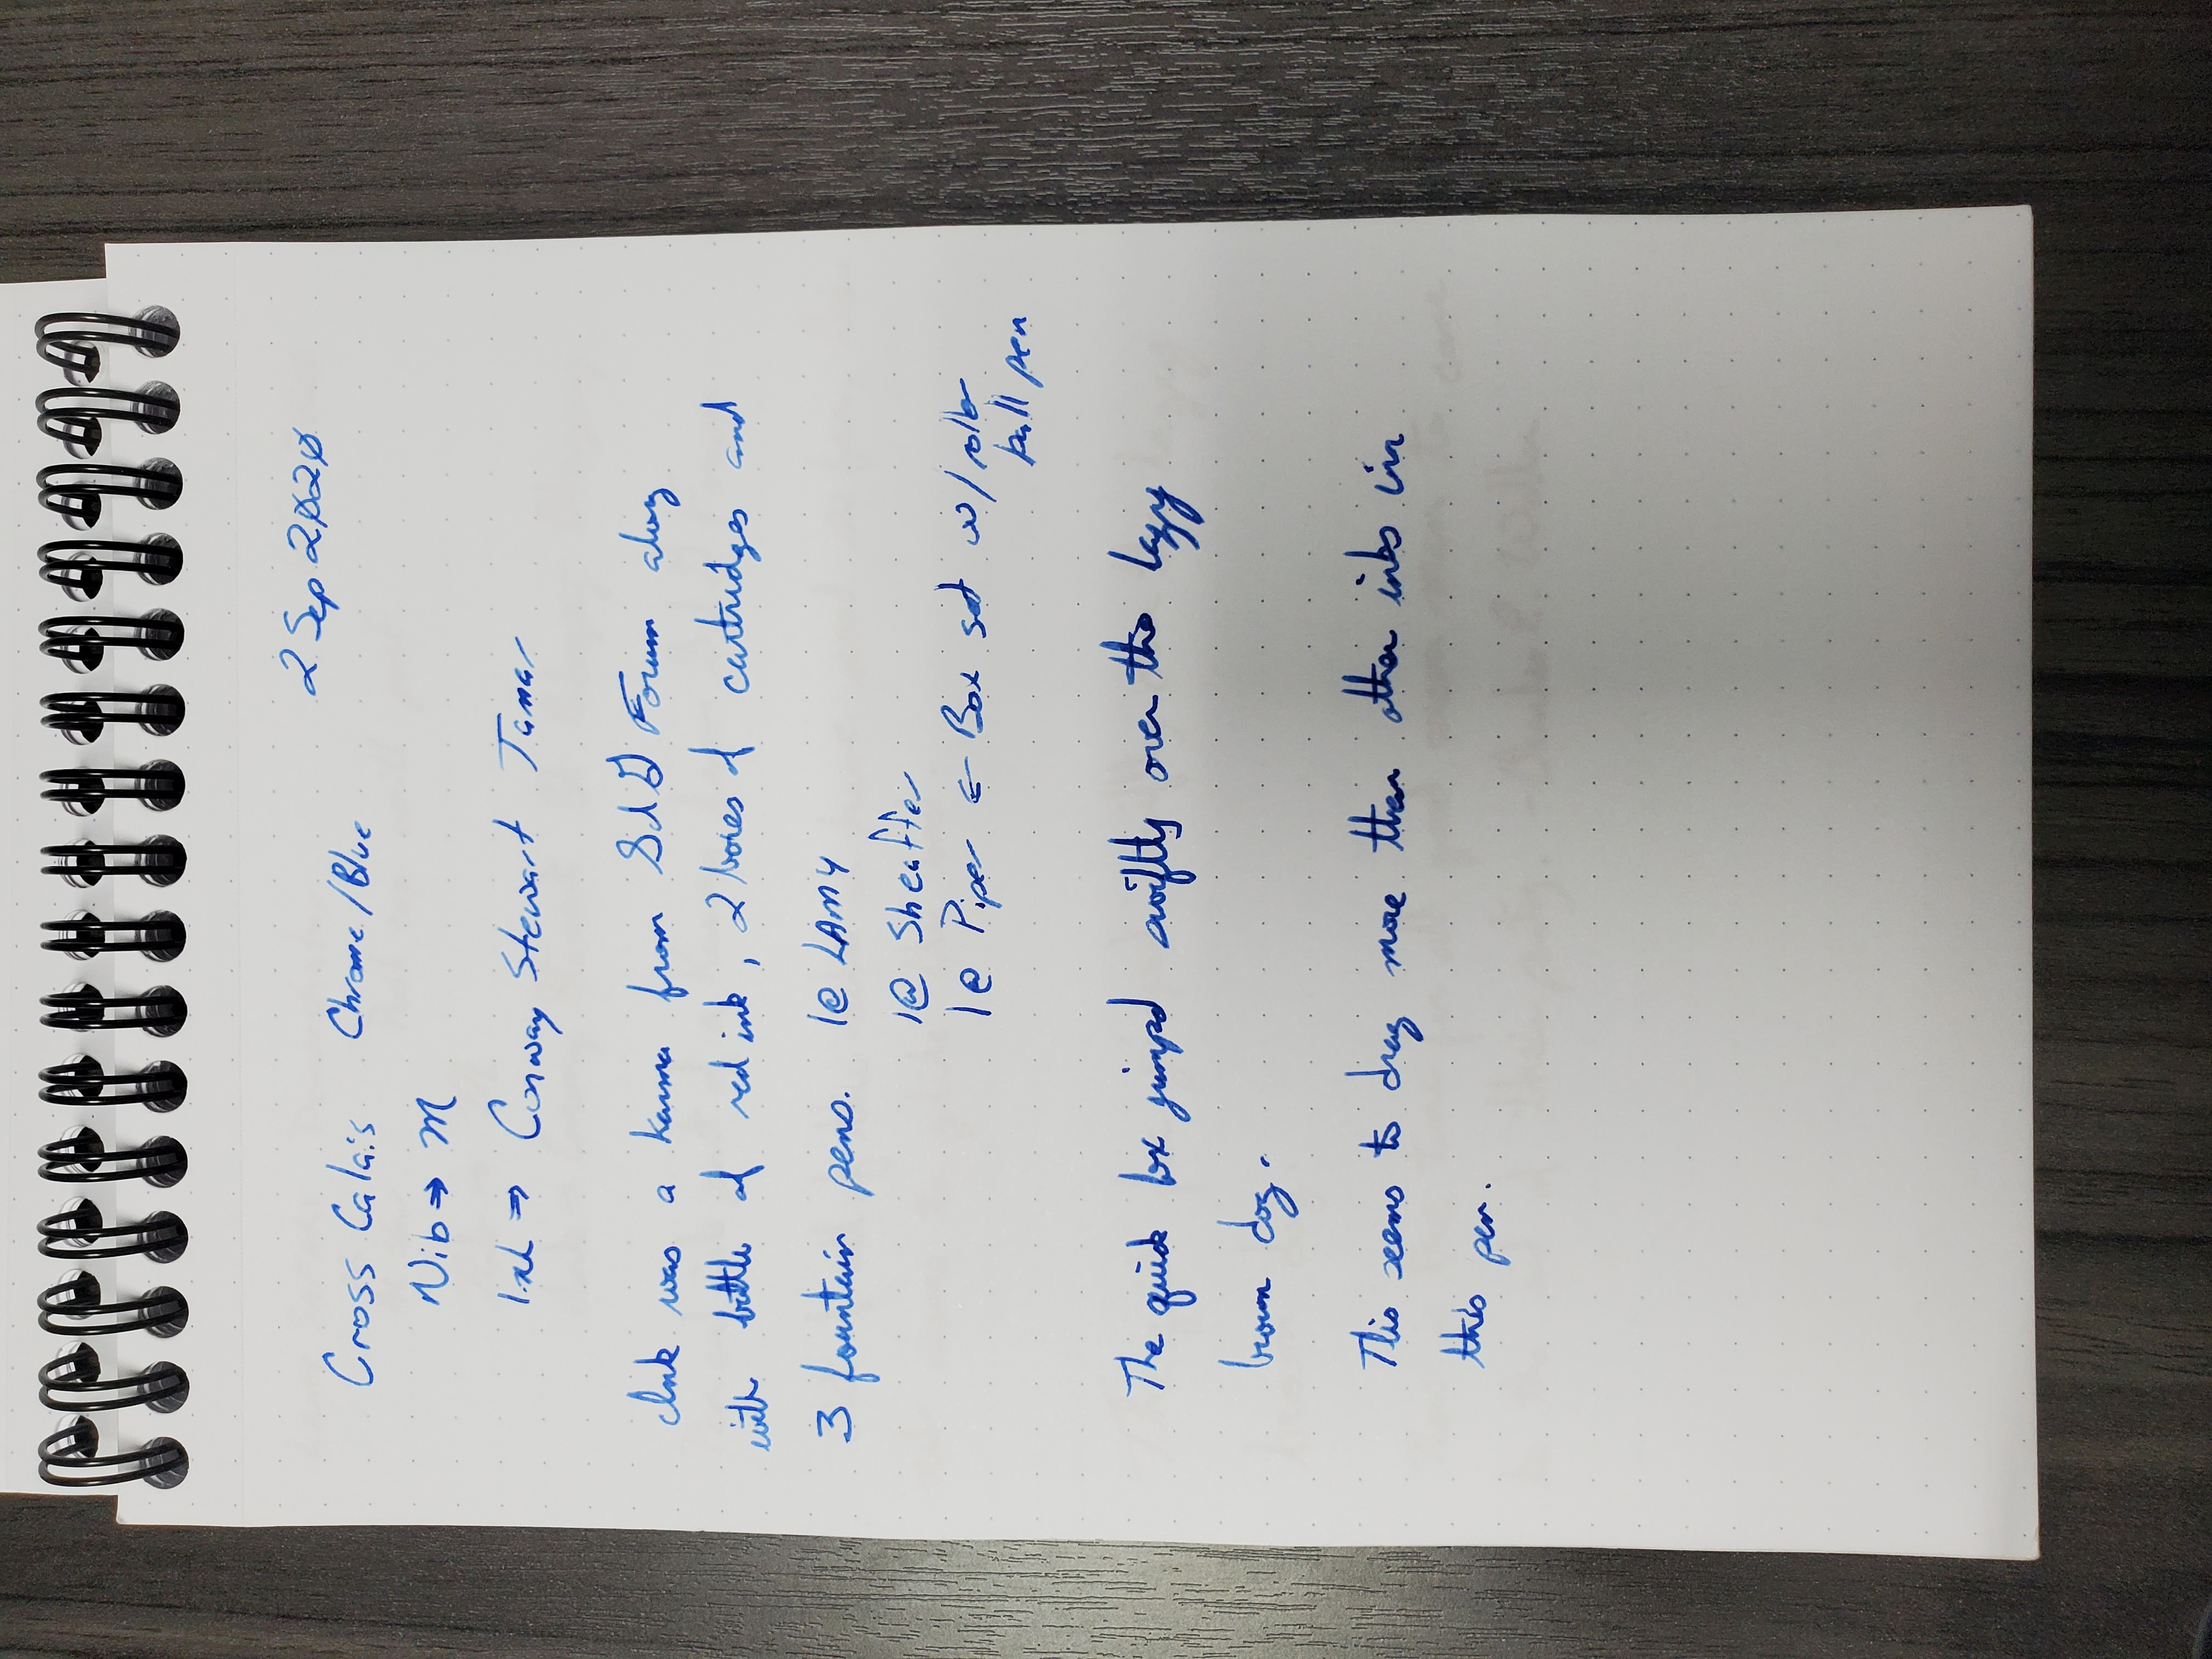 2 Sep 2020
Cross Calais Chrome/Blue
Nib ⇒ M
Ink ⇒ Conway Stewart Tamar
Ink was a karma from Forum along
with bottle of red ink, 2 boxes of cartridges and
3 fountain pens. 1@ LAMY
1@ Sheaffer
1@ Piper ⇐ Box set w/ roller
ball pen
The quick fox jumped swiftly over the lazy
brown dog.
This seems to drag more than other inks in
this pen.